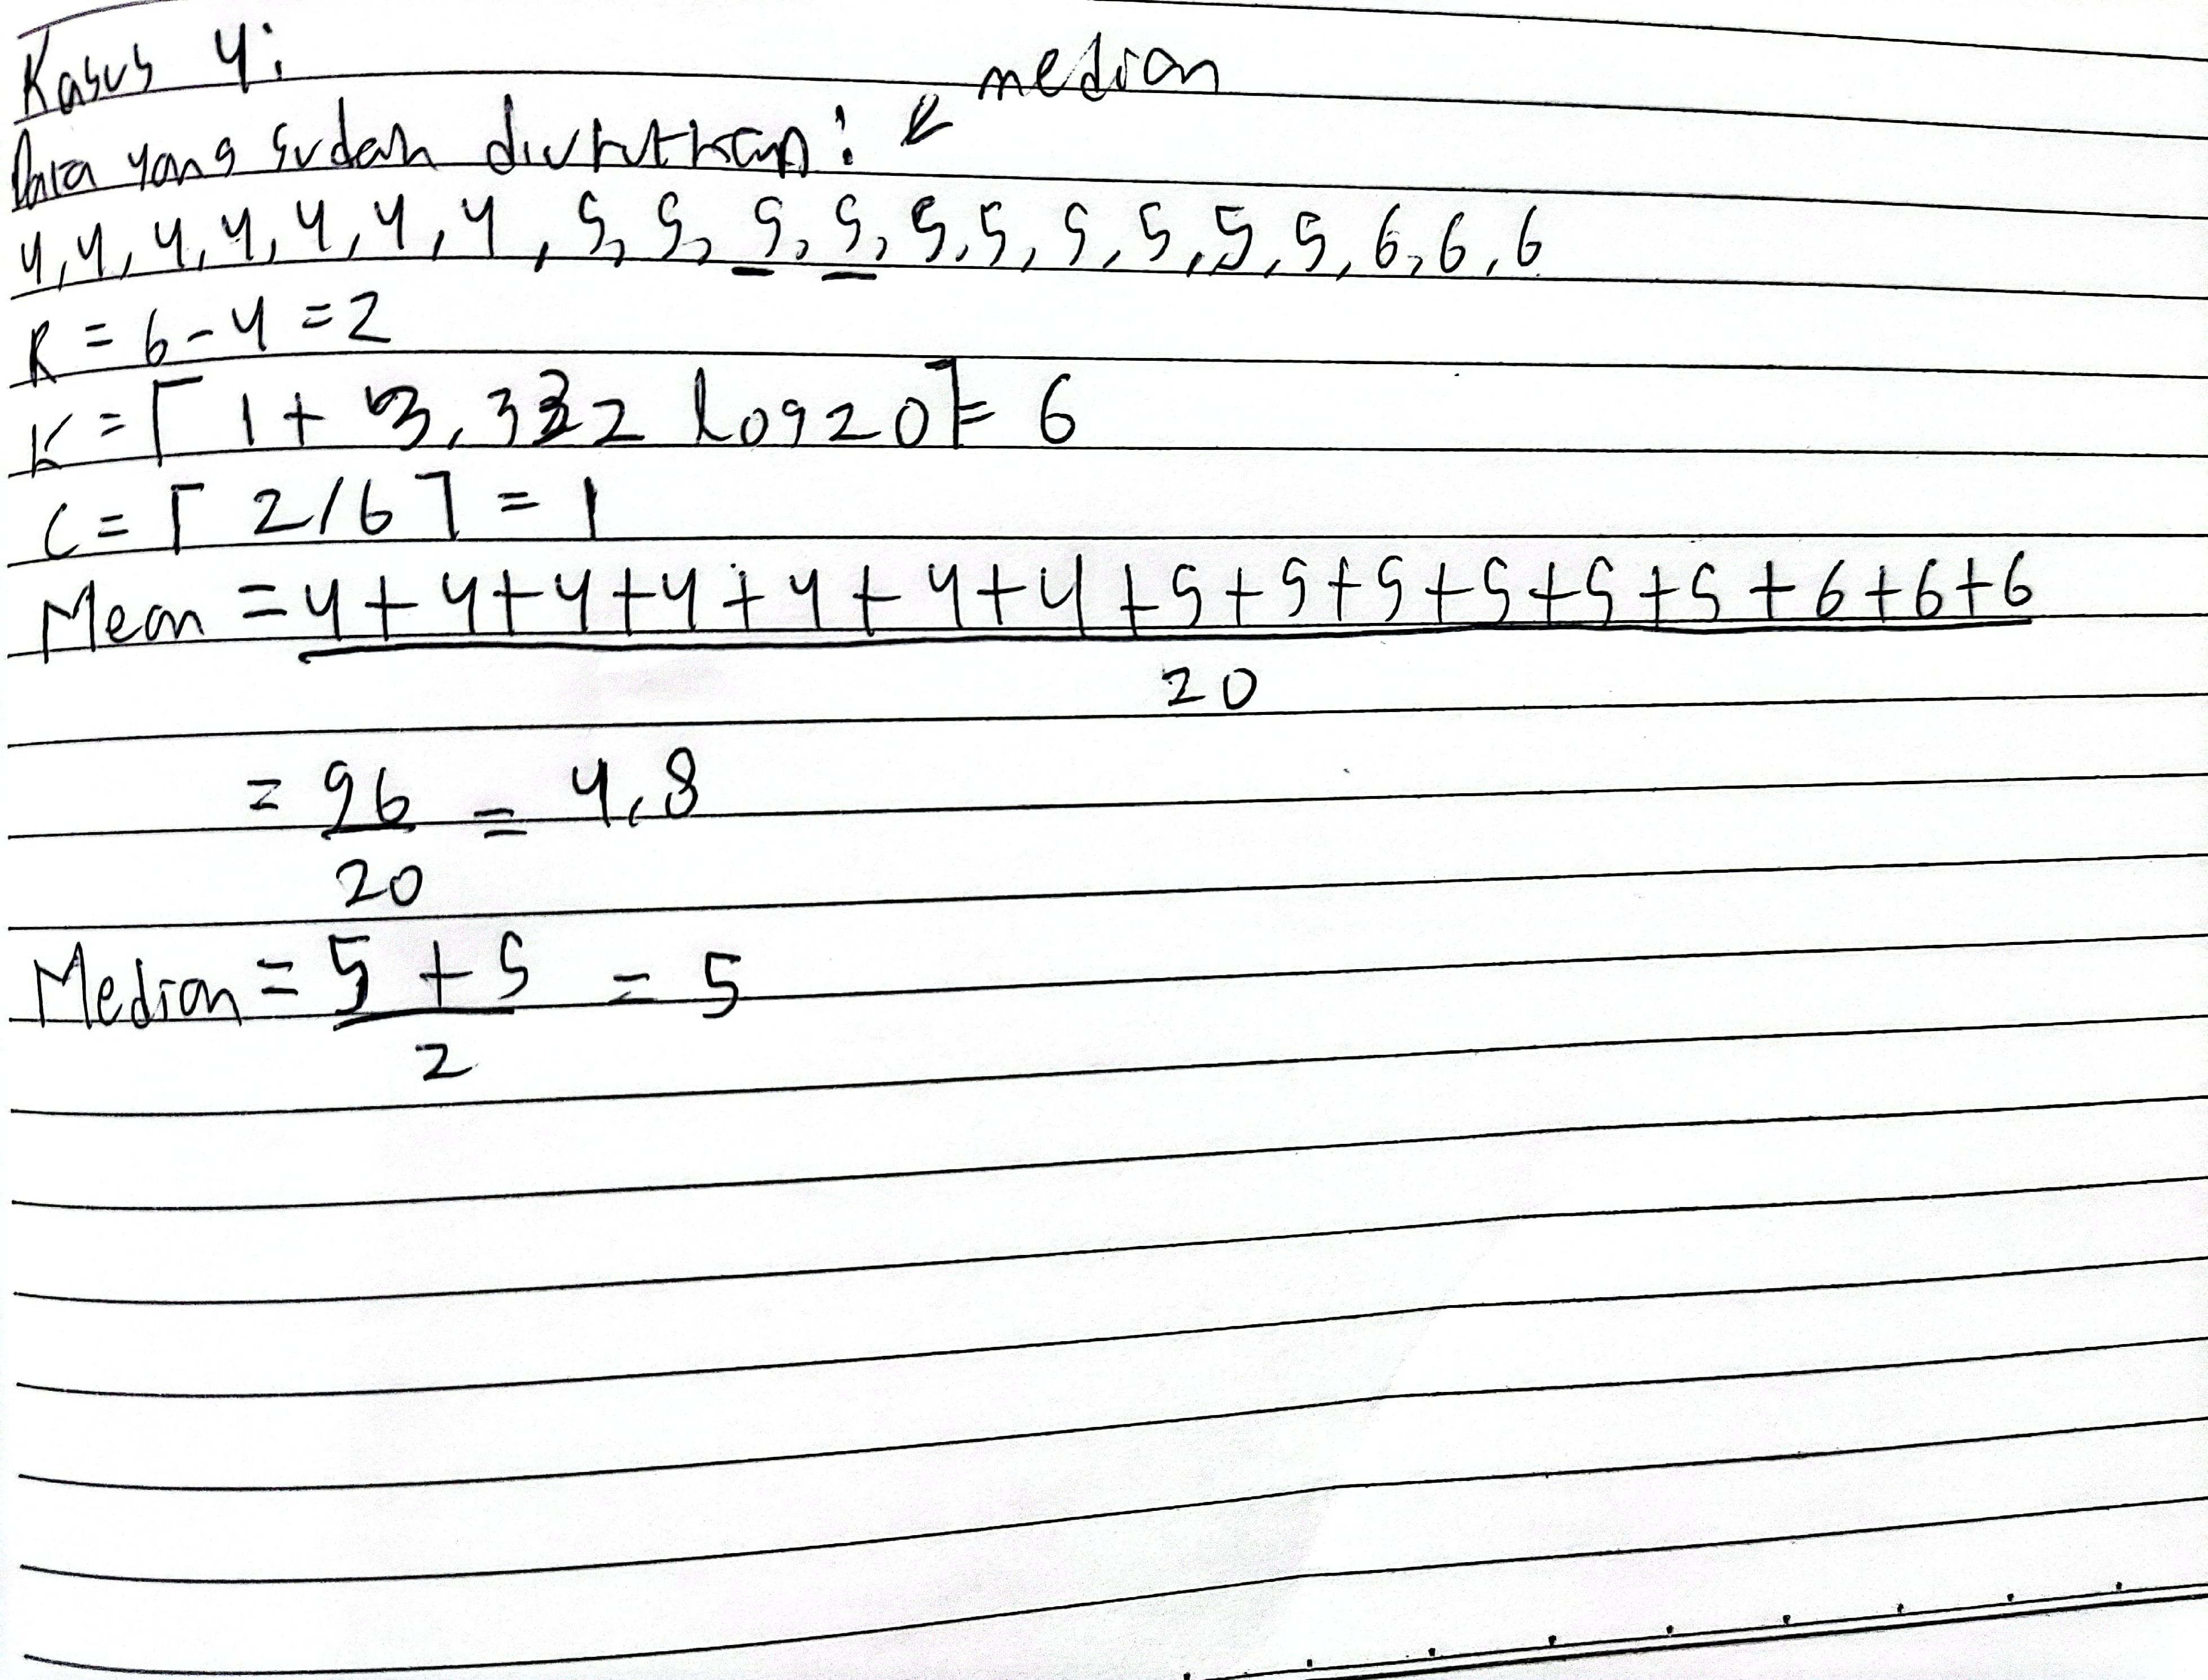 Kasus 4:
median
Data yang sudah diurutkan:
4, 4, 4, 4, 4, 4, 4, 5, 5, 5, 5, 5, 5, 5, 5, 5, 5, 6, 6, 6
R = 6 - 4 = 2
K = ⌈ 1 + 3,332 log 20⌉ = 6
C = ⌈ 2/6 ⌉ = 1
Mean = 4 + 4 + 4 + 4 + 4 + 4 + 4 + 5 + 5 + 5 + 5 + 5 + 5 + 6 + 6 + 6
20
= 96 = 4,8
20
Median = 5 + 5 = 5
2